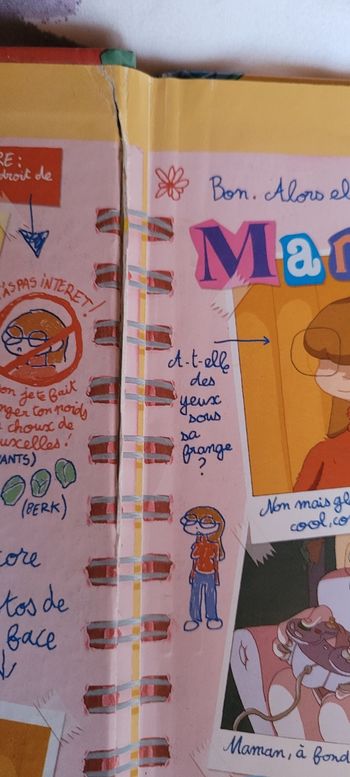 RE :
droit de
T'AS PAS INTERET !
on je te fait
nger ton poids
choux de
uxelles !
VANTS)
(BERK)
core
tos de
face
Bon. Alors el
Mam
A-t-elle
des
yeux
sous
sa
frange
?
Non mais gl
cool, co
Maman, à fond